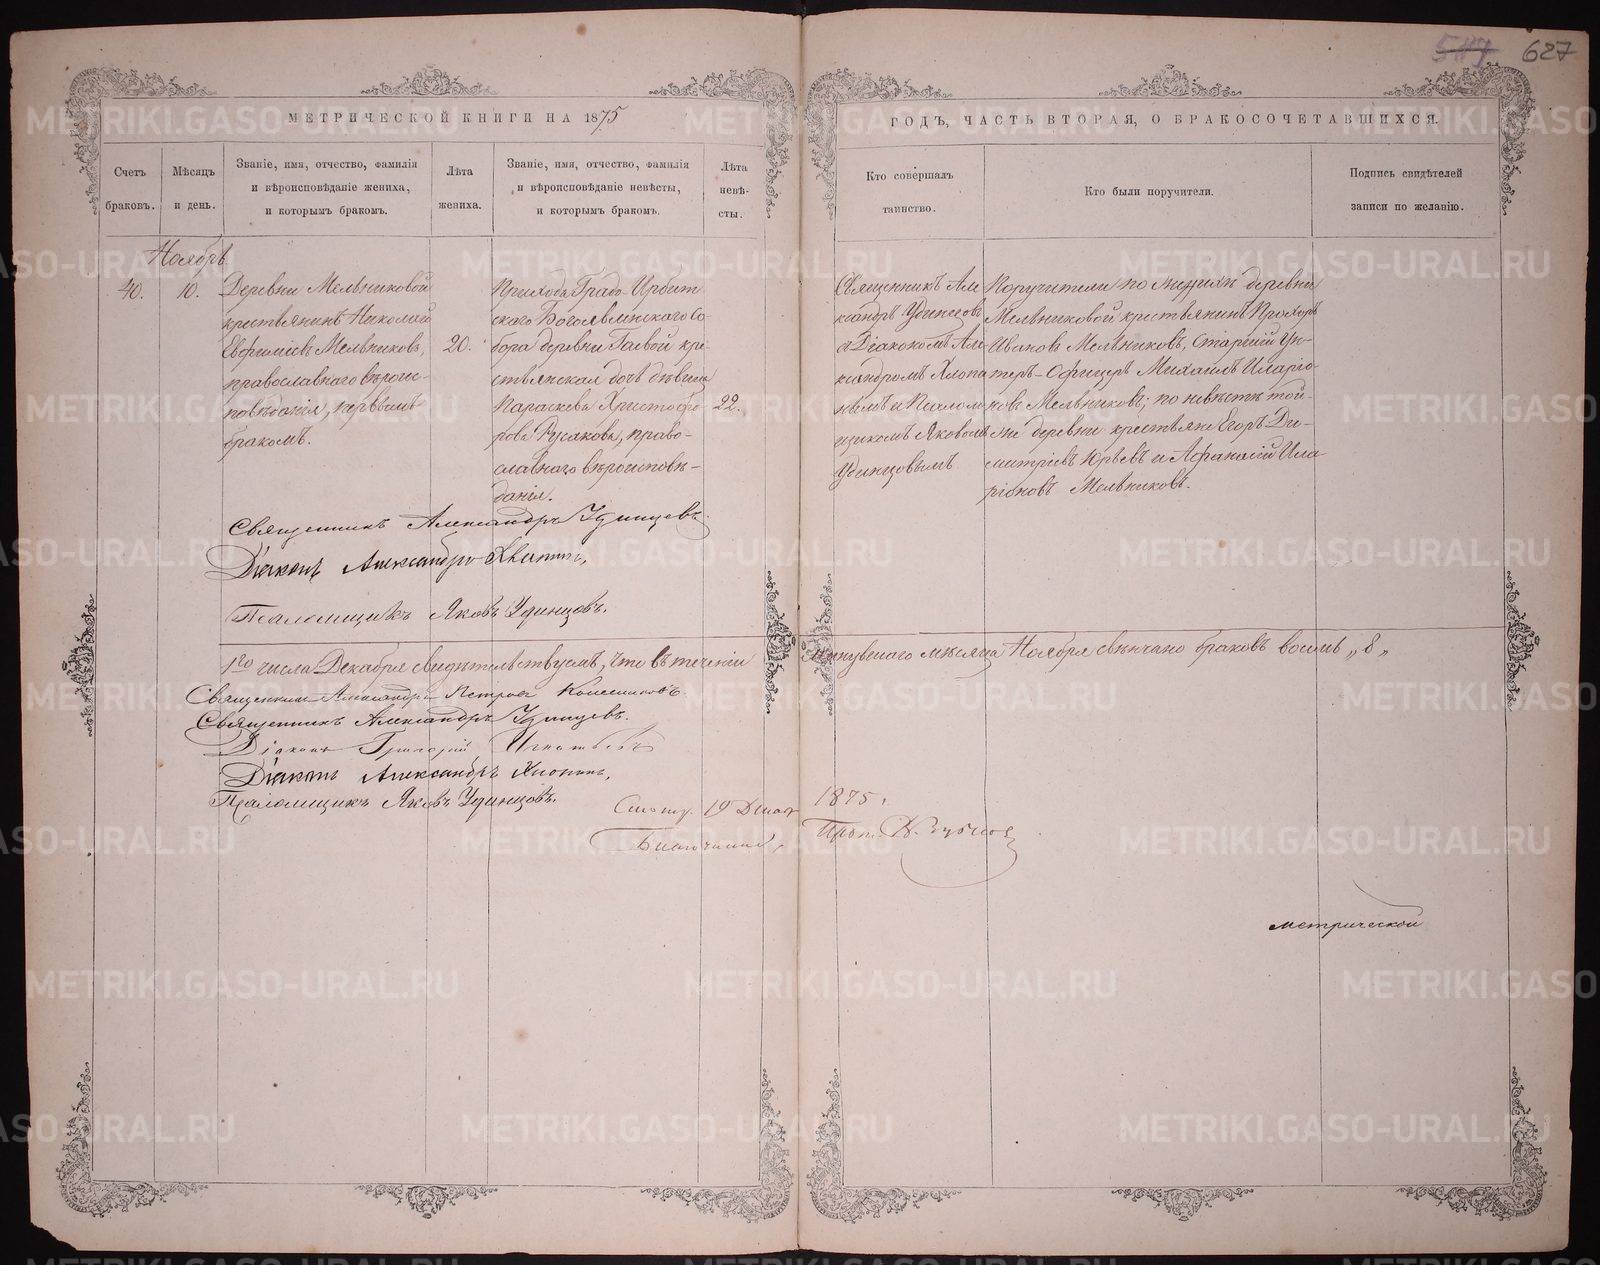 627
МЕТРИЧЕСКОЙ КНИГИ НА 1875
ГОДЪ, ЧАСТЬ ВТОРАЯ, О БРАКОСОЧЕТАВШИХСЯ.
Счетъ
браковъ.
Мѣсяцъ
и день.
Званіе, имя, отчество, фамилія
и вѣроисповѣданіе жениха,
и которымъ бракомъ.
Лѣта
жениха.
Званіе, имя, отчество, фамилія
и вѣроисповѣданіе невѣсты,
и которымъ бракомъ.
Лѣта
невѣ-
сты.
Кто совершалъ
таинство.
Кто были поручители.
Подпись свидѣтелей
записи по желанію.
Ноябрь
40.
10.
Деревни Мельниковой
крестьянинъ Николай
Евфиміевъ Мельниковъ,
православнаго вѣроис-
повѣданія, первымъ
бракомъ.
20.
Прихода Градо-Ирбит
скаго Богоявленскаго со-
бора деревни Гаевой кре-
стьянская дочь дѣвица
Параскева Христофо-
рова Русакова, право-
славнаго вѣроисповѣ-
данія.
22.
Священникъ Але
ксандръ Удинцевъ
съ Діакономъ Але
ксандромъ Хлопи
нымъ и Псалом
щикомъ Яковомъ
Удинцовымъ
Поручители по женихѣ деревни
Мельниковой крестьянинъ Прохоръ
Ивановъ Мельниковъ, Старшій Ун-
теръ-Офицеръ Михаилъ Иларіо-
новъ Мельниковъ; по невѣстѣ той-
же деревни крестьяне Егоръ Ди-
митріевъ Юрьевъ и Афанасій Ила-
ріоновъ Мельниковъ.
Священникъ Александръ Удинцевъ.
Діаконъ Александръ Хлопинъ,
Псаломщикъ Яковъ Удинцовъ.
1го числа Декабря свидѣтельствуемъ, что въ теченіи минувшаго мѣсяца Ноября вѣнчано браковъ восемь „8„
Священникъ Александръ Петровъ
Священникъ Александръ Удинцевъ.
Діаконъ Григорій Игнатьевъ
Діаконъ Александръ Хлопинъ,
Псаломщикъ Яковъ Удинцовъ.
19 1875 г.
Благочинный, Прот.
метрической
METRIKI.GASO-URAL.RU